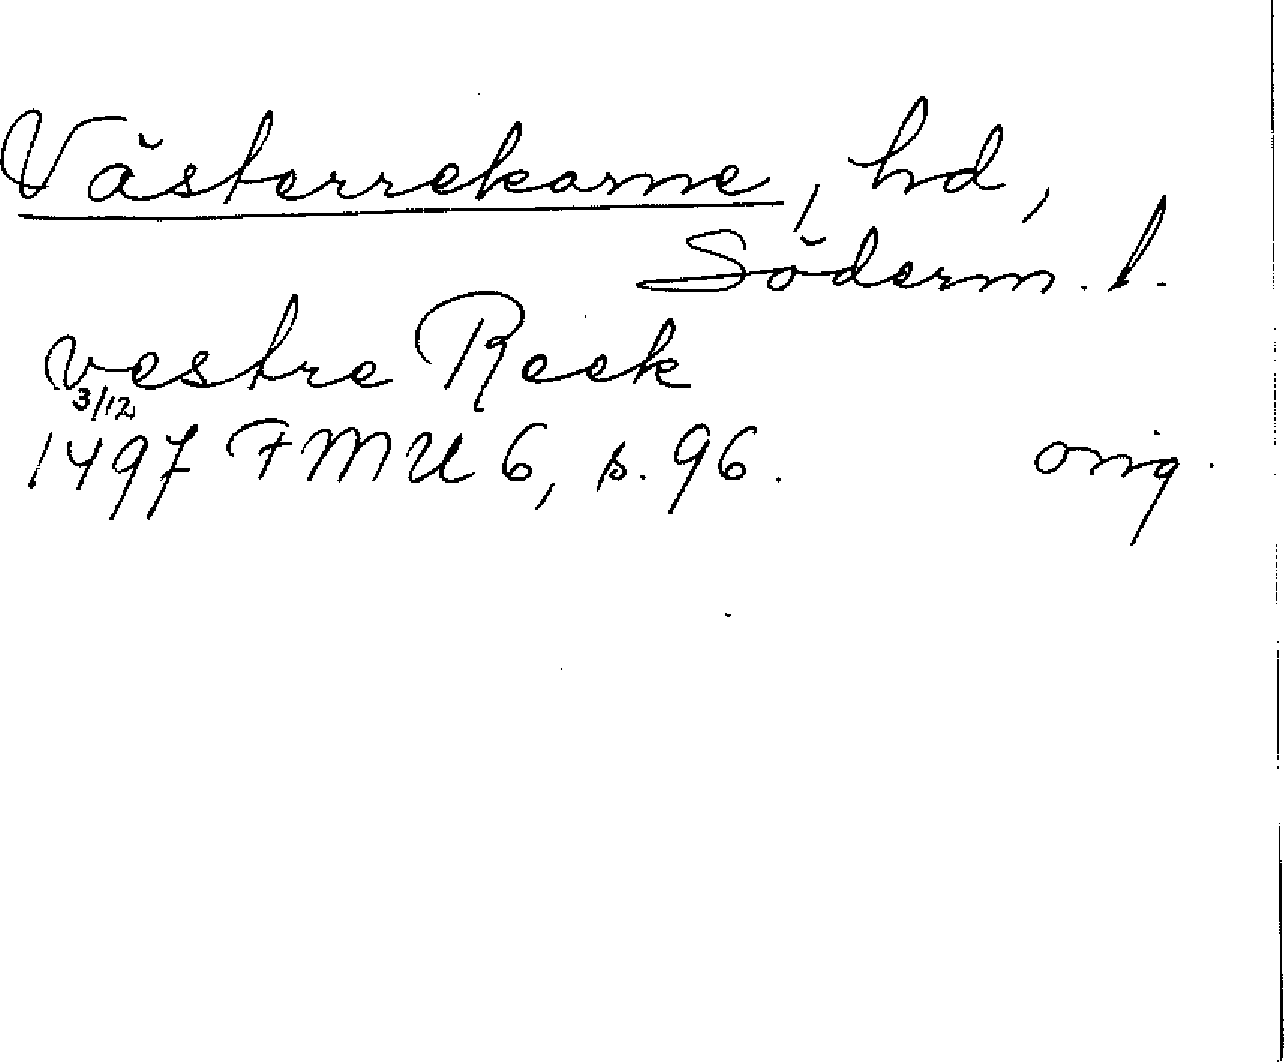 Västerrekarne, hd,
Söderm. l.
vestre Reek
3/12
1497 FMU 6, s. 96. orig.